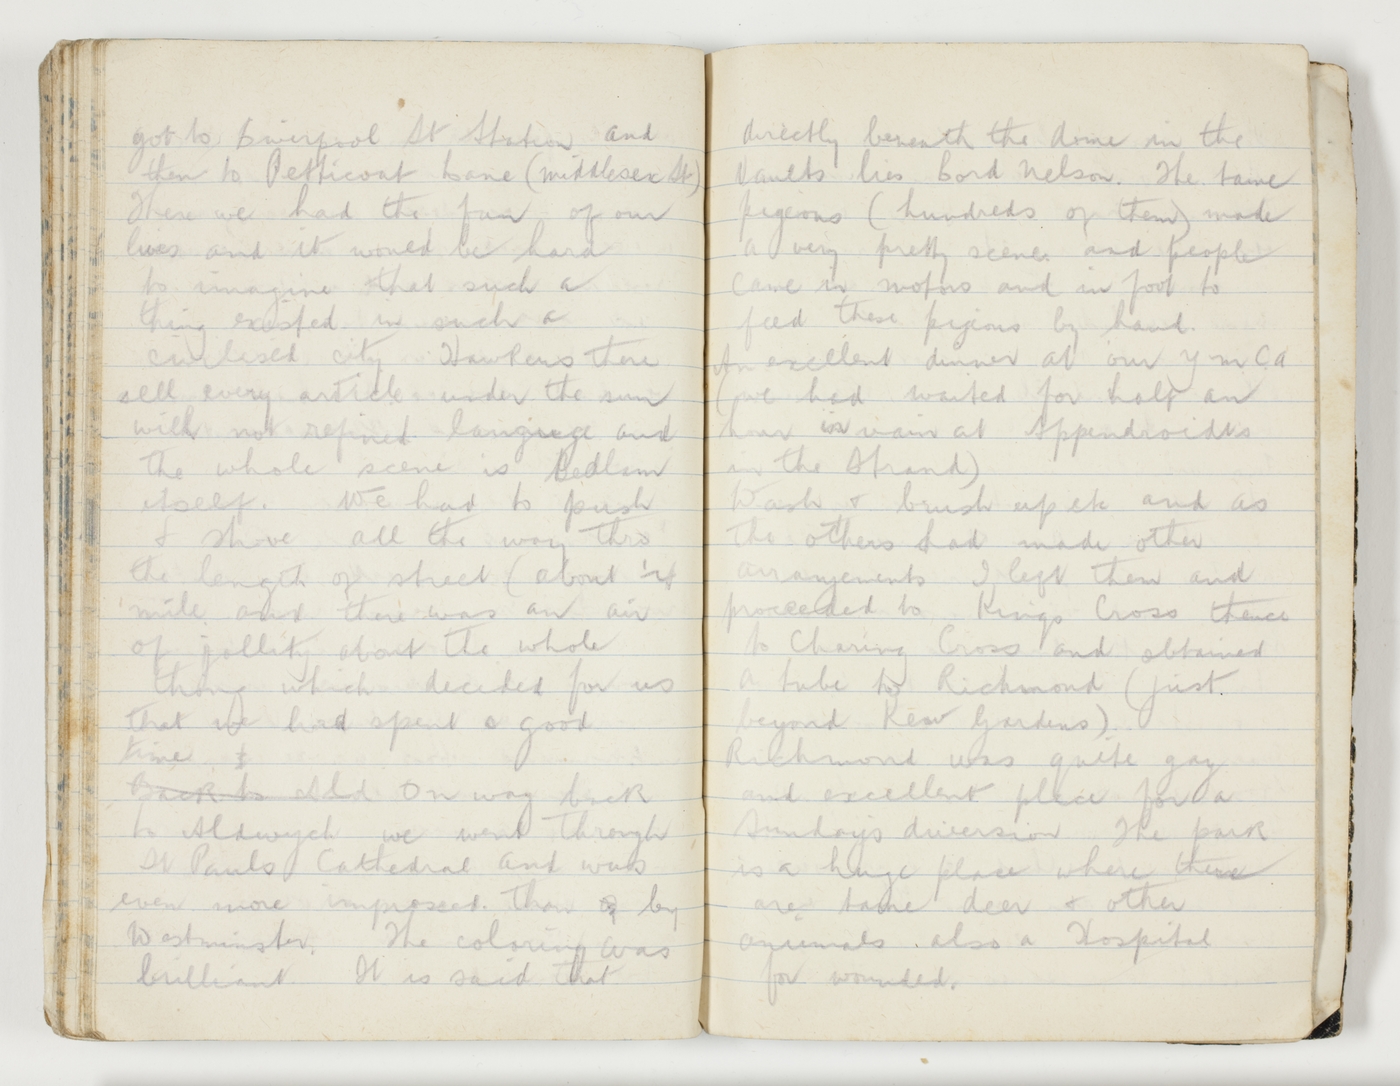 got to Liverpool St Station and
then to Petticoat Lane (middlesex St)
There we had the fun of our
lives and it would be hard
to imagine that such a
thing existed in such a
civilised city Hawkers there
sell every article under the sun
with not refined language and
the whole scene is Bedlam
itself. We had to push
& shove all the way thro
the length of street (about
mile and there was an air
of jollity about the whole
thing which decided for us
that we had spent a good
time &
Back to Ald On way back
to Aldwych we went through
St Pauls Cathedral and was
even more impressed than by
Westminster. The coloring was
brilliant It is said that
directly beneath the dome in the
Vaults lies Lord Nelson. The tame
pigeons (hundreds of them) made
a very pretty scene and people
came in motors and in foot to
feed these pigions by hand.
An excellent dinner at our Y m C a
(we had waited for half an
hour in vain at Appendroidts
in the Strand)
Wash & brush up etc and as
the others had made other
arrangements I left them and
proceeded to Kings Cross thence
to Charing Cross and obtained
a tube to Richmond (just
beyond Kew Gardens)
Richmond was quite gay
and excellent place for a
Sunday's diversion The park
is a huge place where there
are tame deer & other
anumals also a Hospital
for wounded.